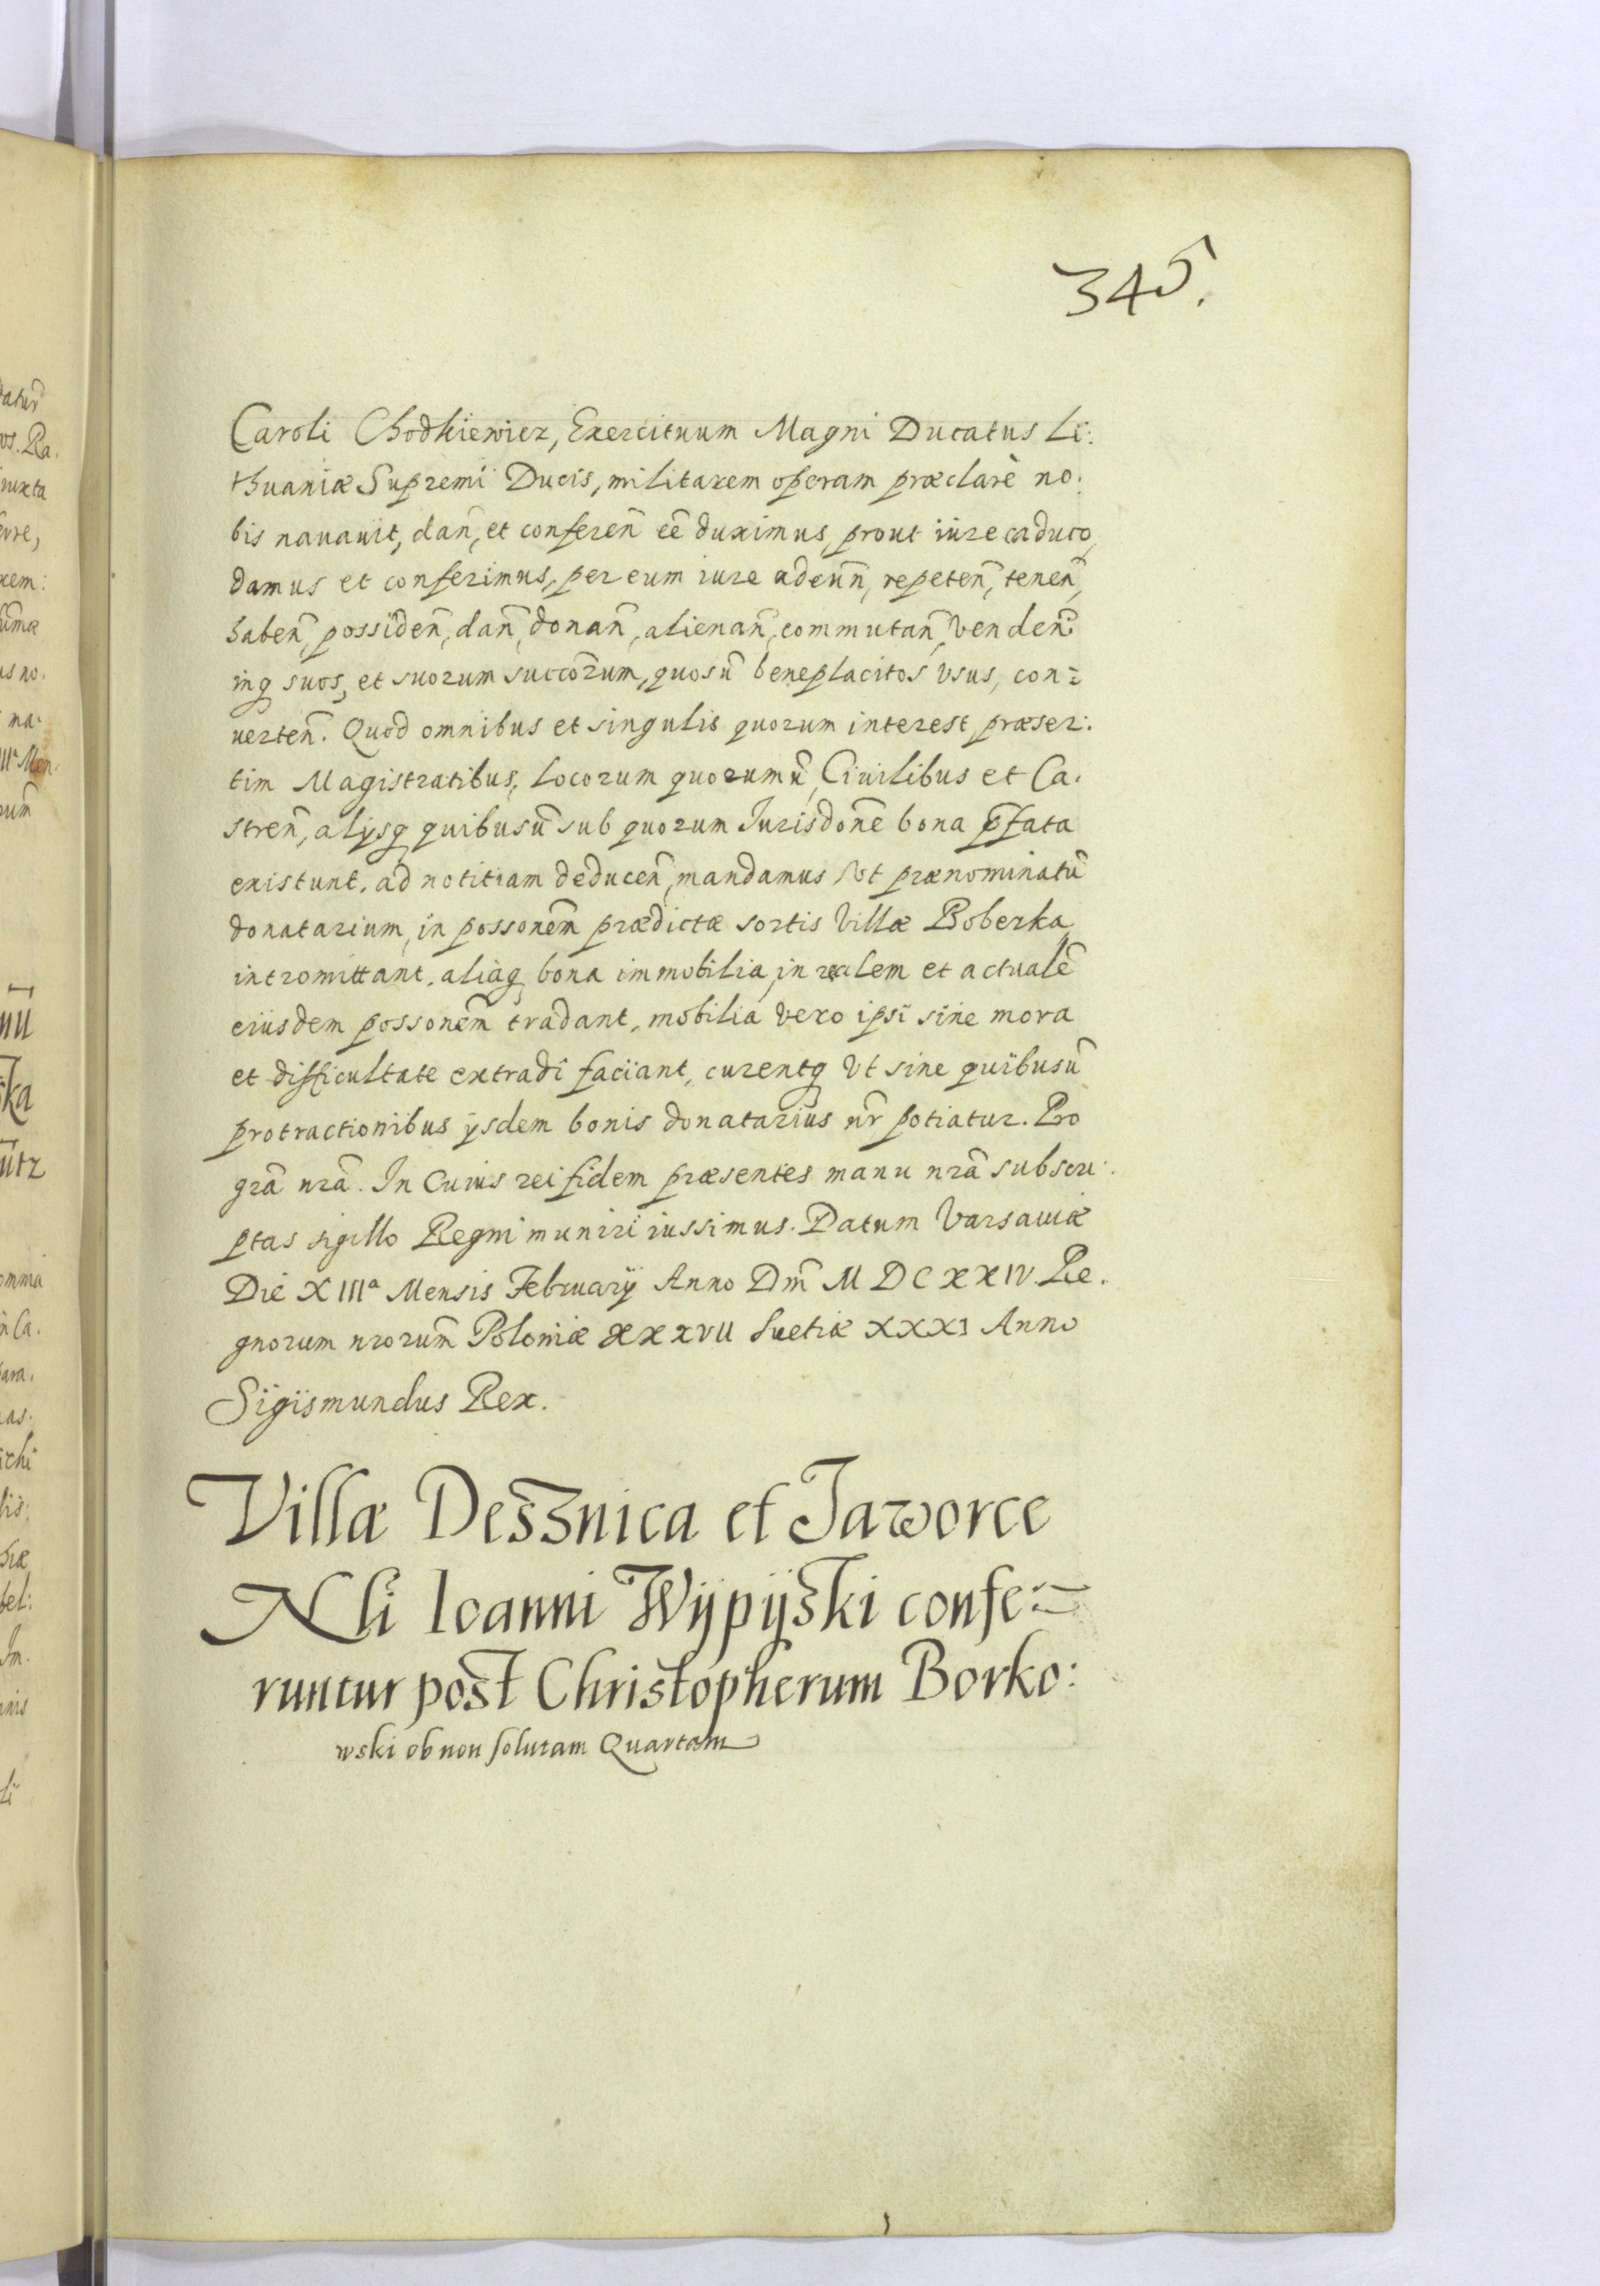 345.
Caroli Chodkiewicz, Exercituum Magni Ducatus Li:
thuaniæ Supremi Ducis, militarem operam præclarè no:
bis nauauit, dan̄, et conferen̄ eē duximus, prout iure caduco,
damus et conferimus, per eum iure adeun̄, repeten̄, tenen̄,
haben̄, possiden̄, dan̄, donan̄, alienan̄, commutan̄, venden̄,
inq suos, et suorum succōrum, quosū beneplacitos vsus, con=
uerten̄. Quod omnibus et singulis quorum interest, præser:
tim Magistratibus, locorum quorumū, Ciuilibus et Ca.
stren̄, alijsq quibusū sub quorum Jurisdōne bona p̄fata
existunt, ad notitiam deducen̄, mandamus Vt prænominatū
donatarium, in possonēm prædictæ sortis Villæ Boberka
intromittant, aliaq bona immobilia, in realem et actualē
eiusdem possonēm tradant, mobilia vero ipsi sine mora
et difficultate extradi faciant, curentq Vt sine quibusū
protractionibus ijsdem bonis donatarius nr̄ potiatur. Pro
grā nrā. In Cuius rei fidem præsentes manu nrā subscri:
ptas sigillo Regni muniri iussimus. Datum Varsauiæ
Die XIIIa Mensis Februarij Anno Dn̄i M DC XXIV Re.
gnorum nrorūm Poloniæ XXXVII Suetiæ XXXI Anno
Sigismundus Rex.
Villæ Desznica et Jaworce
Nli Ioanni Wÿpÿski confe:=
runtur post Christopherum Borko:
wski ob non solutam Quartam